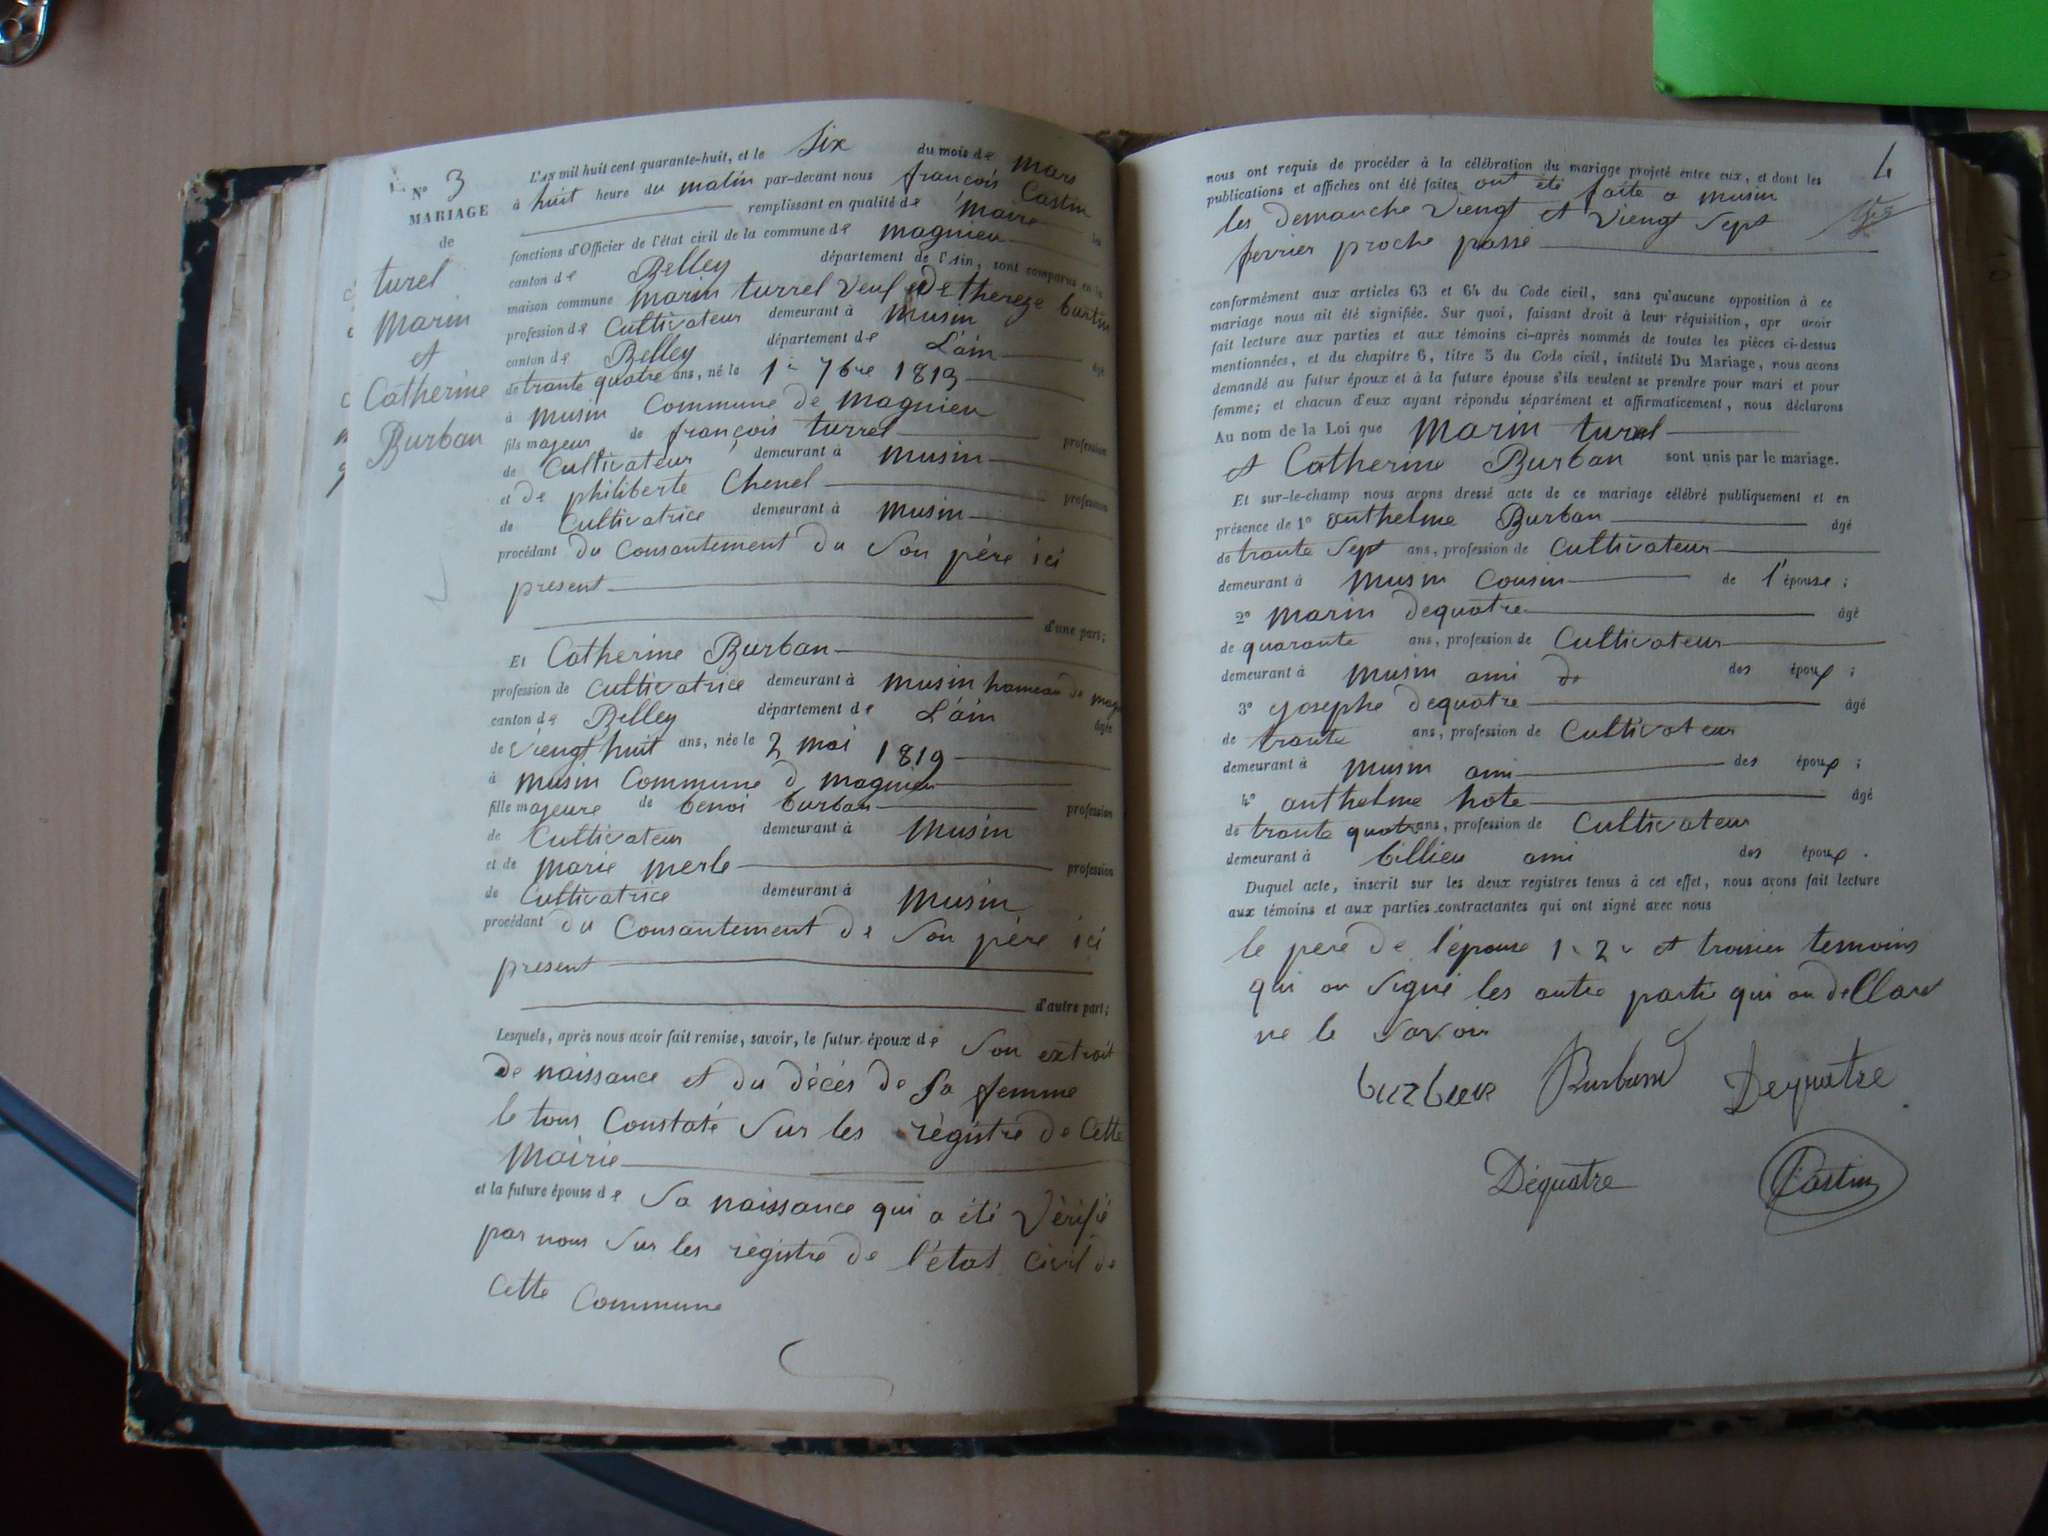 N° 3
MARIAGE
de
turel
Marin
et
Catherine
Burban
L'AN mil huit cent quarante-huit, et le Six du mois de Mars
à huit heure du matin par-devant nous françois Castin
remplissant en qualité de Maire les
fonctions d'Officier de l'état civil de la commune de magnieu
canton de Belley département de l'Ain, sont comparus en la
maison commune Marin turrel Veuf de thereze burtin
profession de Cultivateur demeurant à Musin
canton de Belley département de L'ain âgé
de trante quatre ans, né le 1er 7bre 1813
à Musin Commune de Magnieu
fils majeur de françois turrel profession
de Cultivateur demeurant à Musin
et de philiberte Chenel profession
de Cultivatrice demeurant à Musin
procédant du Consantement du Son père ici
present
d'une part;
Et Catherine Burban
profession de Cultivatrice demeurant à Musin hameau de
canton de Belley département de L'ain âgée
de Viengt huit ans, née le 2 mai 1819
à Musin Commune d Magnieu
fille majeure de benoi burban profession
de Cultivateur demeurant à Musin
et de Marie Merle profession
de Cultivatrice demeurant à Musin
procédant du Consantement de Son père ici
present
d'autre part;
Lesquels, après nous avoir fait remise, savoir, le futur époux de Son extrait
de naissance et du décés de Sa femme
le tous Constaté Sur les régistre de Cette
Mairie
et la future épouse de Sa naissance qui a été Vérifié
par nous Sur les régistre de l'état civil de
Cette Commune
4
nous ont requis de procéder à la célébration du mariage projeté entre eux, et dont les
publications et affiches ont été faites ont été faite a musin
les demanche Viengt et Viengt Sept
fevrier proche passé
conformément aux articles 63 et 64 du Code civil, sans qu'aucune opposition à ce
mariage nous ait été signifiée. Sur quoi, faisant droit à leur réquisition, apr avoir
fait lecture aux parties et aux témoins ci-après nommés de toutes les pièces ci-dessus
mentionnées, et du chapitre 6, titre 5 du Code civil, intitulé Du Mariage, nous avons
demandé au futur époux et à la future épouse s'ils veulent se prendre pour mari et pour
femme; et chacun d'eux ayant répondu séparément et affirmativement, nous déclarons
Au nom de la Loi que Marin turel
et Catherine Burban sont unis par le mariage.
Et sur-le-champ nous avons dressé acte de ce mariage célébré publiquement et en
présence de 1° anthelme Burban âgé
de trante Sept ans, profession de Cultivateur
demeurant à Musin Cousin de l'épouse;
2° Marin dequatre âgé
de quarante ans, profession de Cultivateur
demeurant à Musin ami de des époux;
3° yosephe dequatre âgé
de trante ans, profession de Cultivateur
demeurant à Musin ami des époux;
4° anthelme hote âgé
de trante quatre ans, profession de Cultivateur
demeurant à billieu ami des époux.
Duquel acte, inscrit sur les deux registres tenus à cet effet, nous avons fait lecture
aux témoins et aux parties contractantes qui ont signé avec nous
le pere de l'épouse 1er 2e et troisien temoins
qui on Signé les autre partie qui on deClare
ne le Savoir
Burband Dequatre
Déquatre Castin